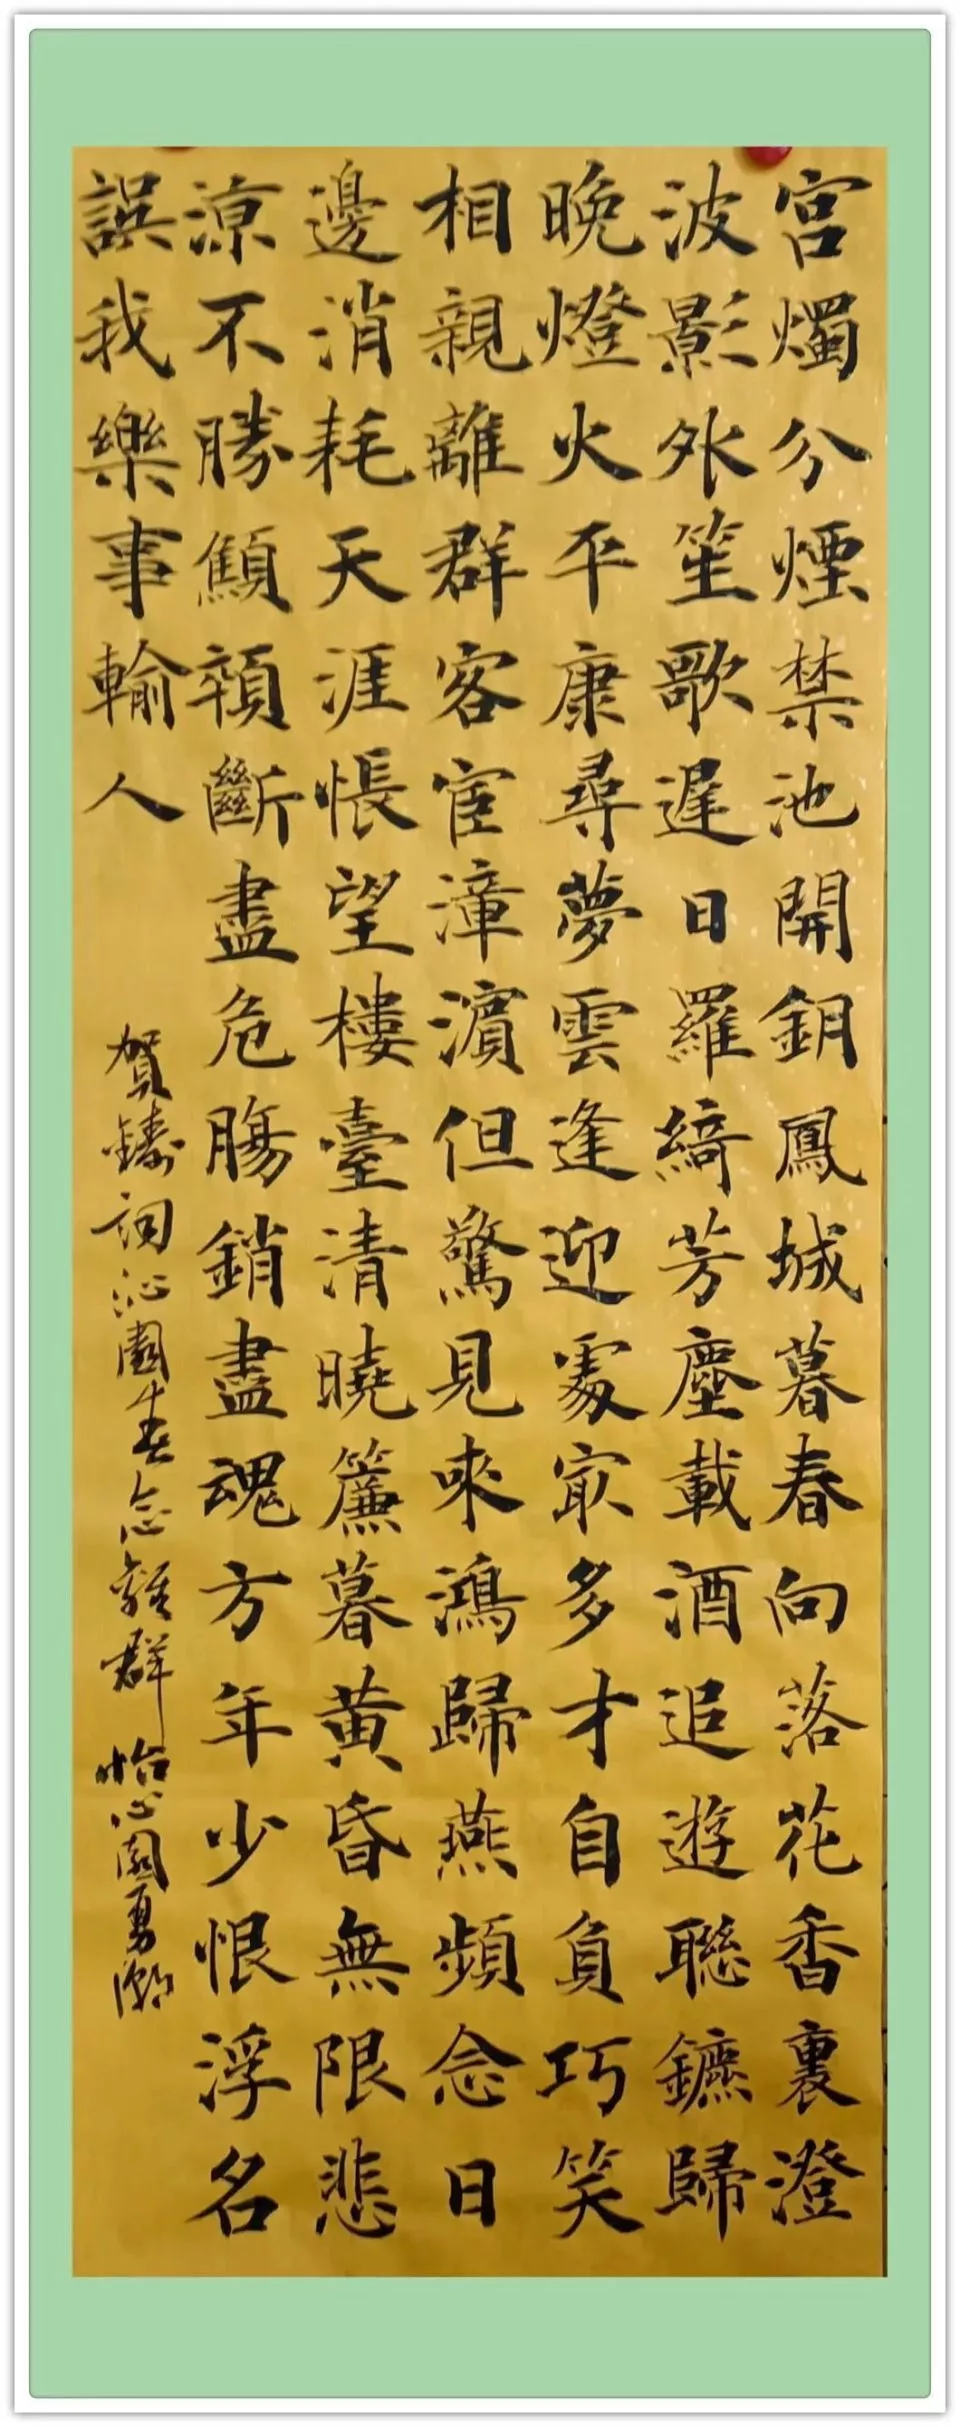 宮燭分煙禁池開鈅鳳城暮春向落花香裏澄
波影外笙歌遲日羅綺芳塵載酒追遊聯鑣歸
晚燈火平康尋夢雲逢迎處㝡多才自負巧笑
相親離群客宦漳濱但驚見來鴻歸燕頻念日
邊消耗天涯悵望樓臺清曉簾暮黃昏無限悲
涼不勝顦顇斷盡危腸銷盡魂方年少恨浮名
誤我樂事輸人
贺鑄詞沁園春念離群 怡心園勇